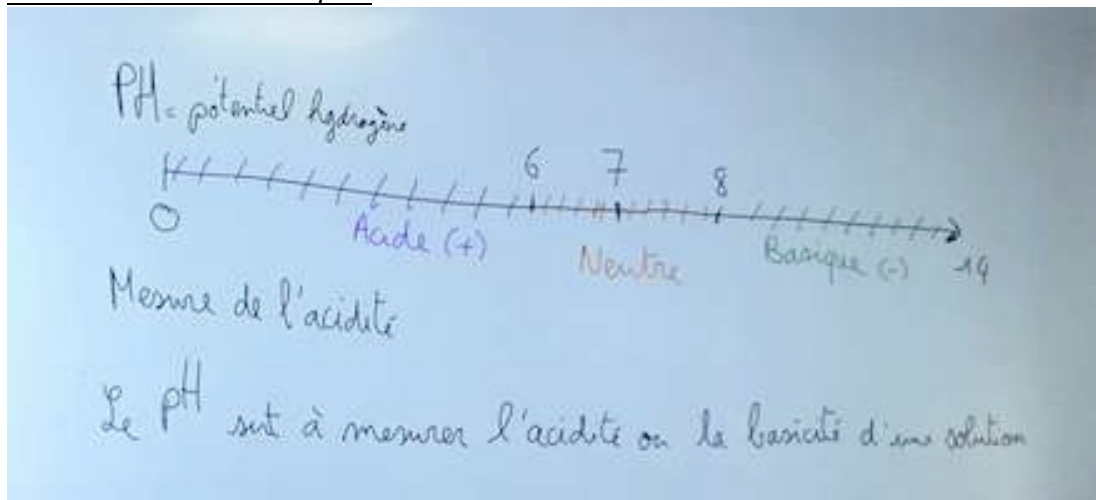 PH = potentiel hydrogène
6 7 8
0 Acide (+) Neutre Basique (-) 14
Mesure de l'acidité
Le pH sert à mesurer l'acidité ou la basicité d'une solution